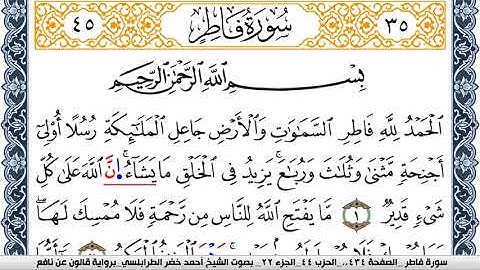 ٤٥ سُورَةُ فَاطِرٍ ٣٥
بِسْمِ اللَّهِ الرَّحْمَٰنِ الرَّحِيمِ
الْحَمْدُ لِلَّهِ فَاطِرِ السَّمَٰوَٰتِ وَالْأَرْضِ جَاعِلِ الْمَلَٰٓئِكَةِ رُسُلًا أُوْلِىٓ
أَجْنِحَةٍ مَّثْنَىٰ وَثُلَٰثَ وَرُبَٰعَ يَزِيدُ فِى الْخَلْقِ مَا يَشَآءُ إِنَّ اللَّهَ عَلَىٰ كُلِّ
شَىْءٍ قَدِيرٌ ١ مَّا يَفْتَحِ اللَّهُ لِلنَّاسِ مِن رَّحْمَةٍ فَلَا مُمْسِكَ لَهَا
سورة فاطر _الصفحة ٤٣٤_ الحزب ٤٤_ الجزء ٢٢_ بصوت الشيخ أحمد خضر الطرابلسي_ برواية قالون عن نافع